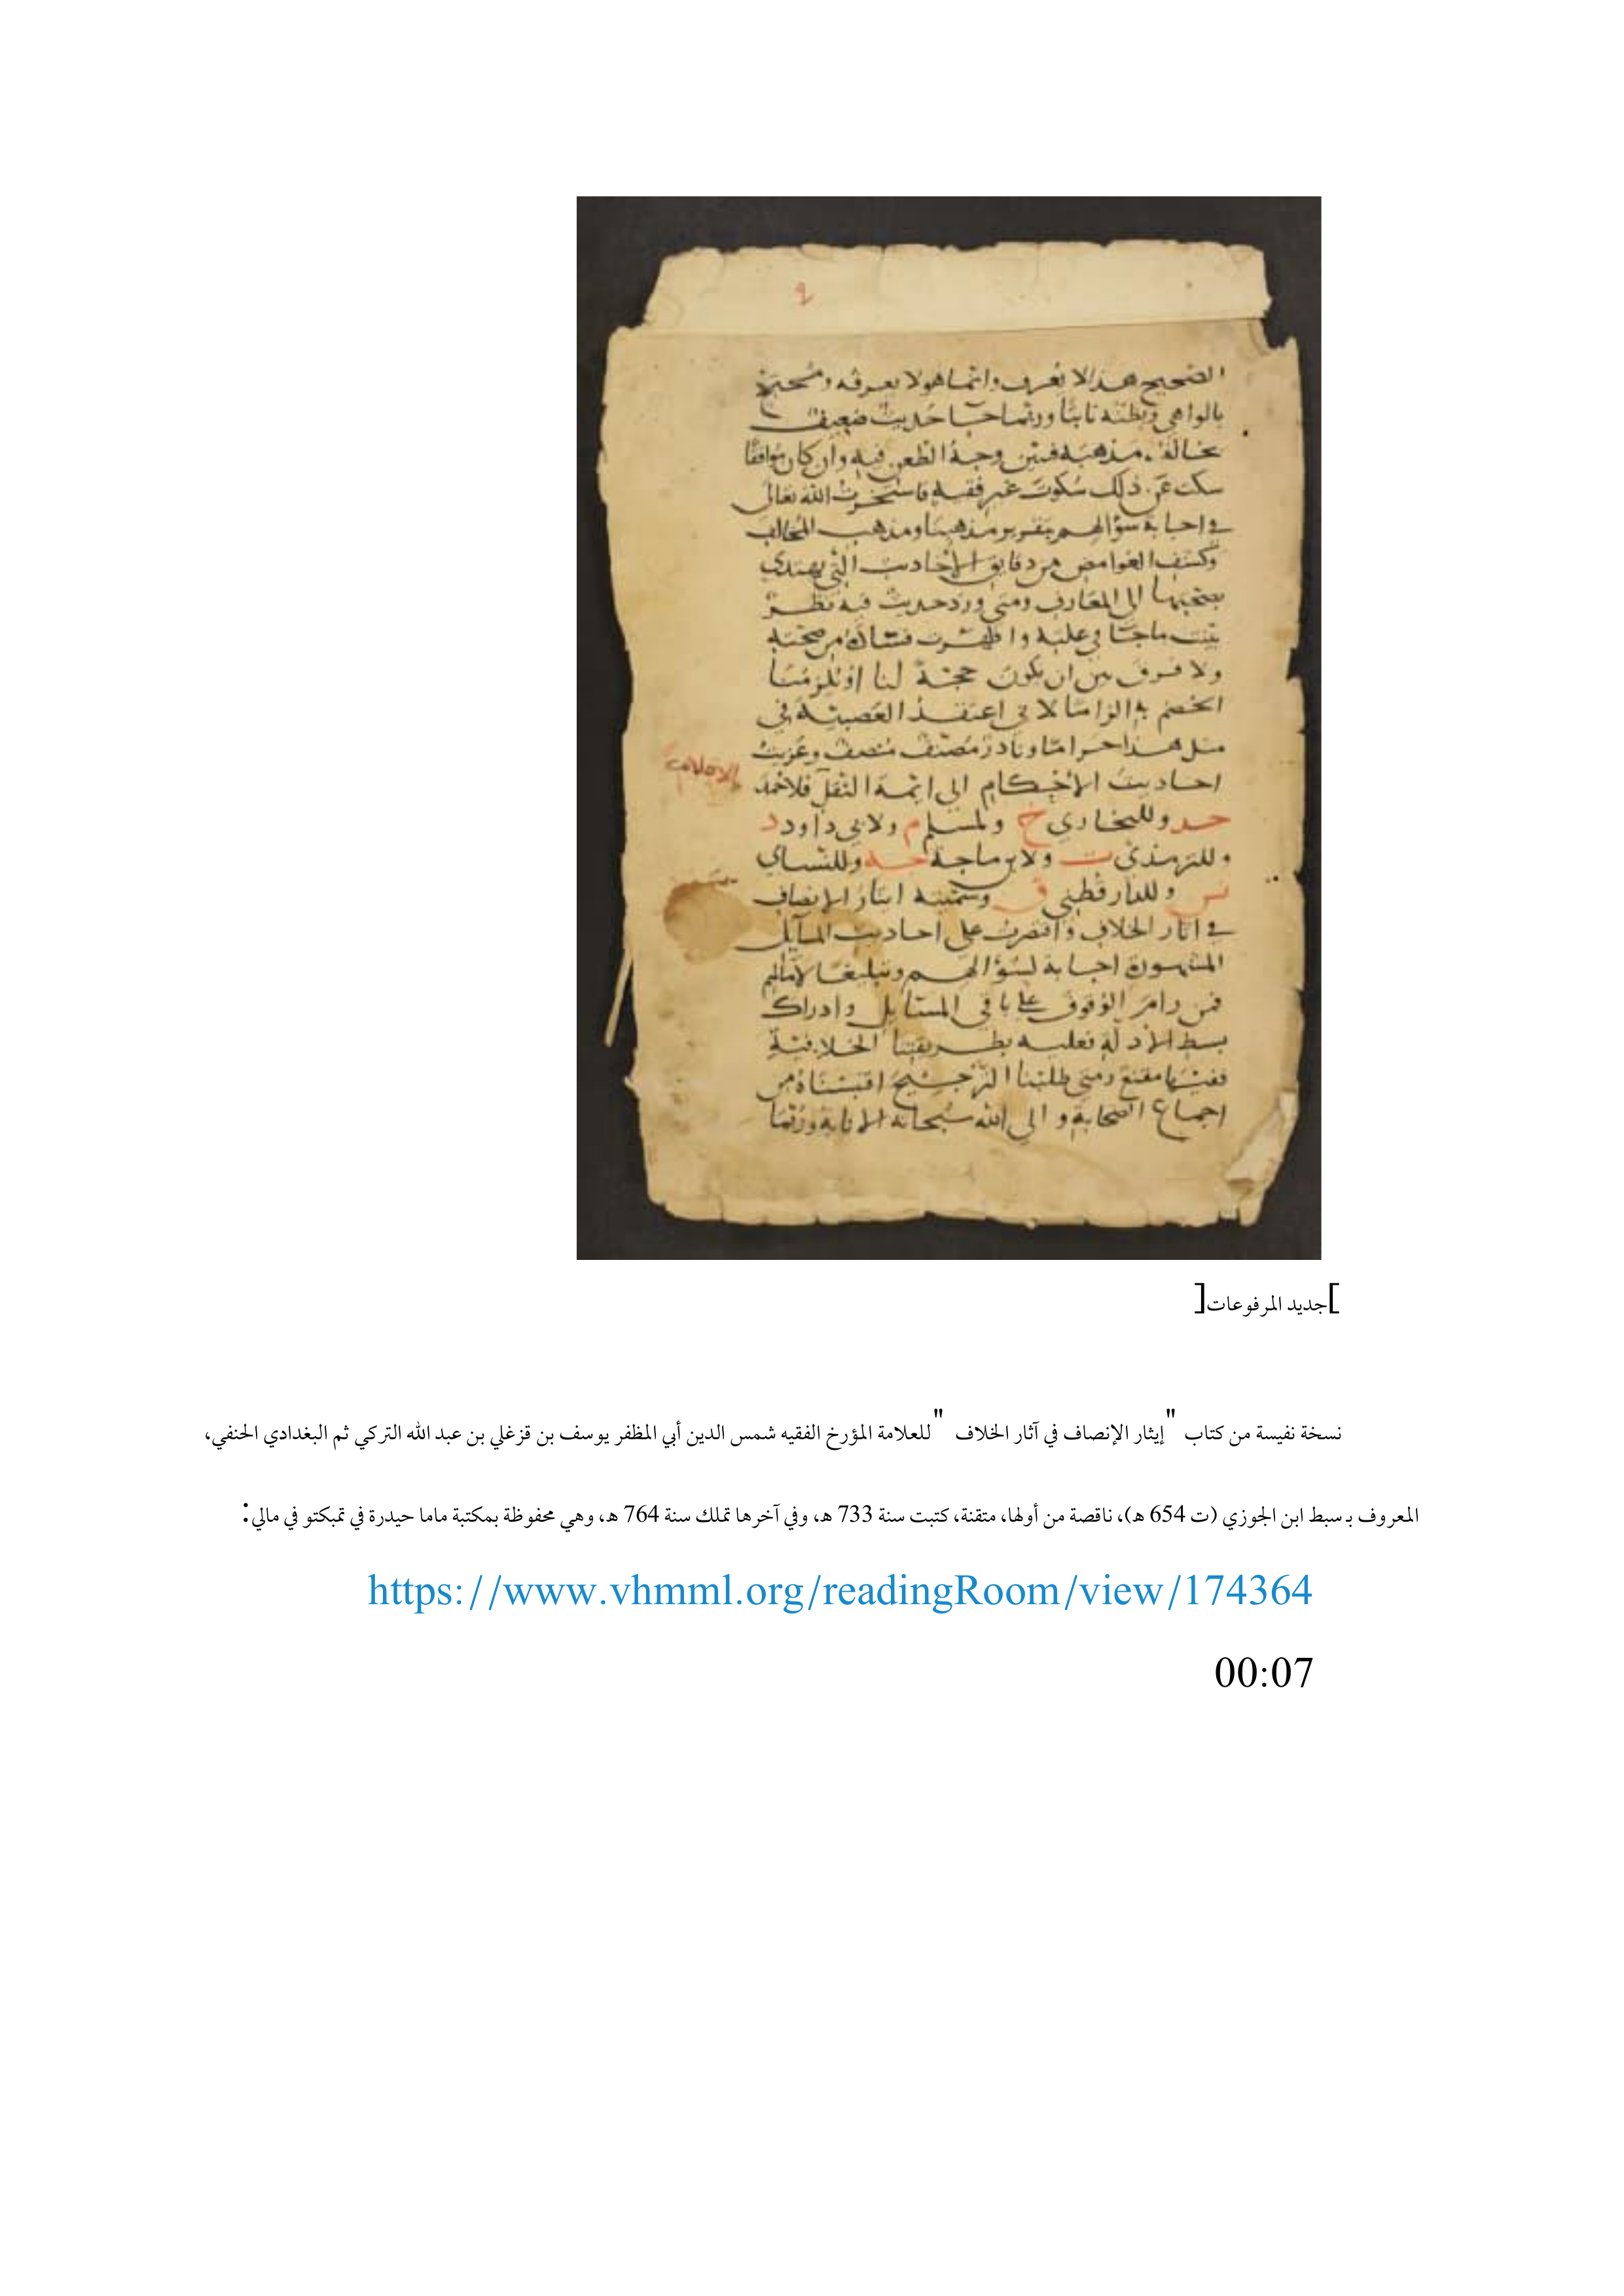 ٩
الصحيح هذا لا يعرف وانما هو لا يعرفه ومحتج
بالواهي ويظنه ثابتا وربما جا حديث ضعيف
يخالف مذهبه فيبين وجه الطعن فيه وان كان موافقا
سكت عن ذلك سكوت غير فقيه فاستخرت الله تعالى
في اجابة سؤالهم بتقرير مذهبنا ومذهب المخالف
وكشف الغوامض من دقايق الاحاديث التي يهتدي
بها الى المعارف ومتى ورد حديث فيه نظر
بينت ما جا في عليه واظهرت فساده من صحته
ولا فرق بين ان يكون حجة لنا او يلزمنا
الخصم به الزاما لاني اعتقد العصبية في
مثل هذا حراما ونادر مصنف منصف وعزيت
احاديث الاحكام الى ايمة النقل فلاحمد
حد وللبخاري خ ولمسلم م ولابي داود د
وللترمذي ت ولابن ماجة جه وللنساي
نس وللدارقطني ق وسميته ايثار الانصاف
في اثار الخلاف واقتصرت على احاديث المسايل
المشهورة اجابة لسؤالهم وتبليغا لامالهم
فمن رام الوقوف على باقي المسايل وادراك
بسط الادلة فعليه بطريقتنا الخلافية
ففيها مقنع ومتى طلبنا الترجيح اقتبسناه من
اجماع الصحابة والى الله سبحانه الانابة وربما
]جديد المرفوعات[
نسخة نفيسة من كتاب "إيثار الإنصاف في آثار الخلاف "للعلامة المؤرخ الفقيه شمس الدين أبي المظفر يوسف بن قزغلي بن عبد الله التركي ثم البغدادي الحنفي،
المعروف بـ سبط ابن الجوزي (ت 654 هـ)، ناقصة من أولها، متقنة، كتبت سنة 733 هـ، وفي آخرها تملك سنة 764 هـ، وهي محفوظة بمكتبة ماما حيدرة في تمبكتو في مالي:
https://www.vhmml.org/readingRoom/view/174364
00:07